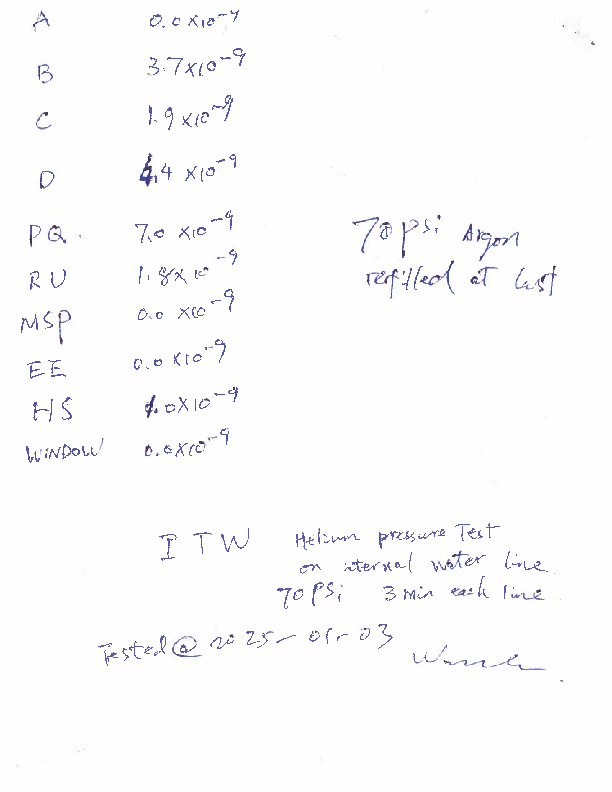 A 0.0 x10⁻⁹
B 3.7x10⁻⁹
C 1.9 x10⁻⁹
D 4.4 x10⁻⁹
PQ. 7.0 x10⁻⁹
RU 1.8x10⁻⁹
MSP 0.0 x10⁻⁹
EE 0.0 x10⁻⁹
HS 1.0x10⁻⁹
WINDOW 0.0x10⁻⁹
70 psi Argon
refilled at last
ITW Helium pressure Test
on internal water line
70 PSi 3 Min each line
Tested @ 2025-01-03